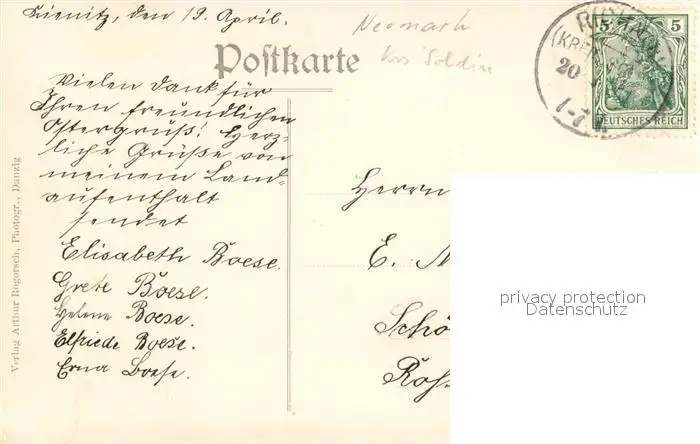 Lienitz, den 19. April.
Neumark
Krs Soldin
Postkarte
5 5
DEUTSCHES REICH
(KRE
20
1-7 N
Vielen Dank für
Ihren freundlichen
Ostergruß! Herz-
liche Grüße von
meinem Land-
aufenthalt
sendet
Elisabeth Boese.
Grete Boese.
Helene Boese.
Elfriede Boese.
Erna Boese.
Herrn
E. N
Schö
Verlag Arthur Rogorsch, Photogr., Danzig
privacy protection
Datenschutz